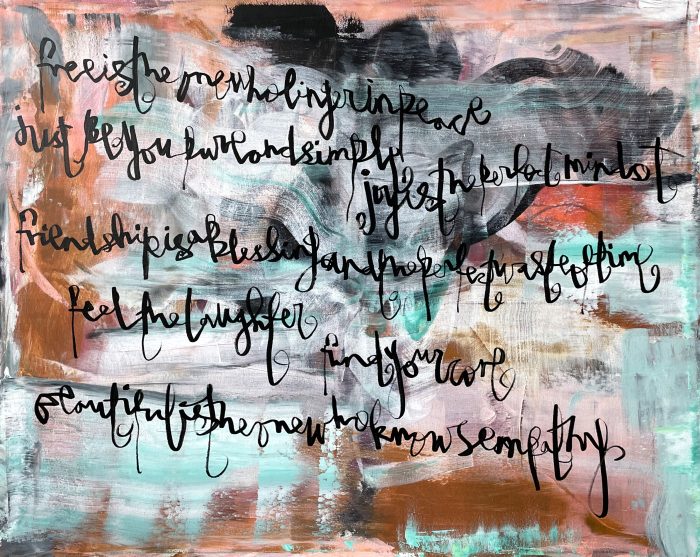 free is the one who linger in peace
just be you pure and simply
joy is the perfect mindset
friendship is a blessing and the perfect waste of time
feel the laughter
find your core
beautiful is the one who knows empathy